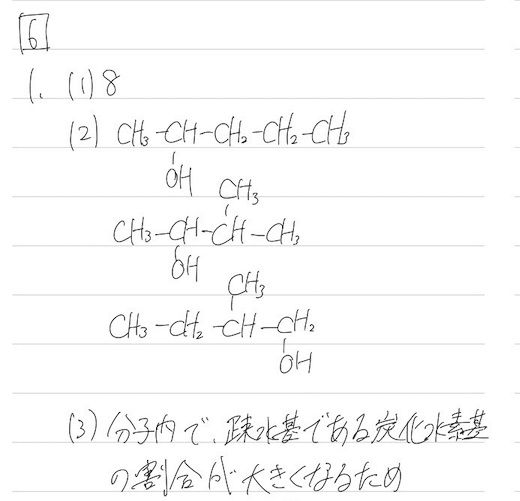 6
1. (1) 8
(2) CH₃-CH-CH₂-CH₂-CH₃
OH
CH₃
CH₃-CH-CH-CH₃
OH
CH₃
CH₃-CH₂-CH-CH₂
OH
(3) 分子内で、疎水基である炭化水素基
の割合が大きくなるため